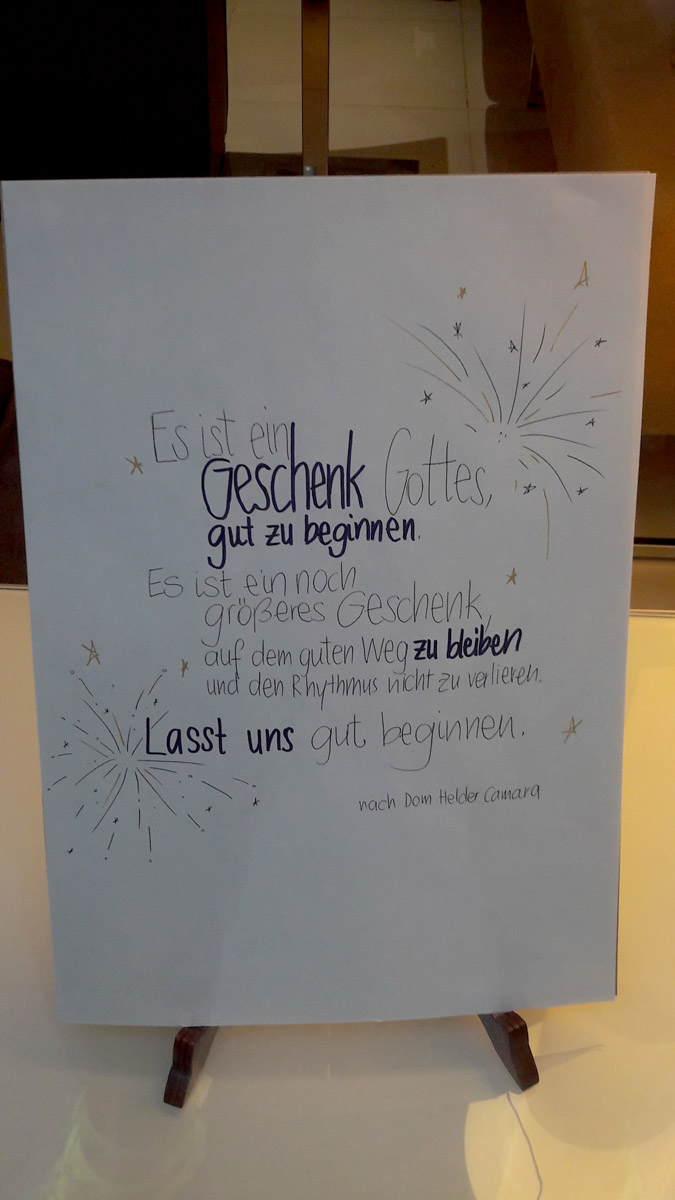 Es ist ein
Geschenk Gottes,
gut zu beginnen.
Es ist ein noch
größeres Geschenk,
auf dem guten Weg zu bleiben
und den Rhythmus nicht zu verlieren.
Lasst uns gut beginnen.
nach Dom Helder Camara